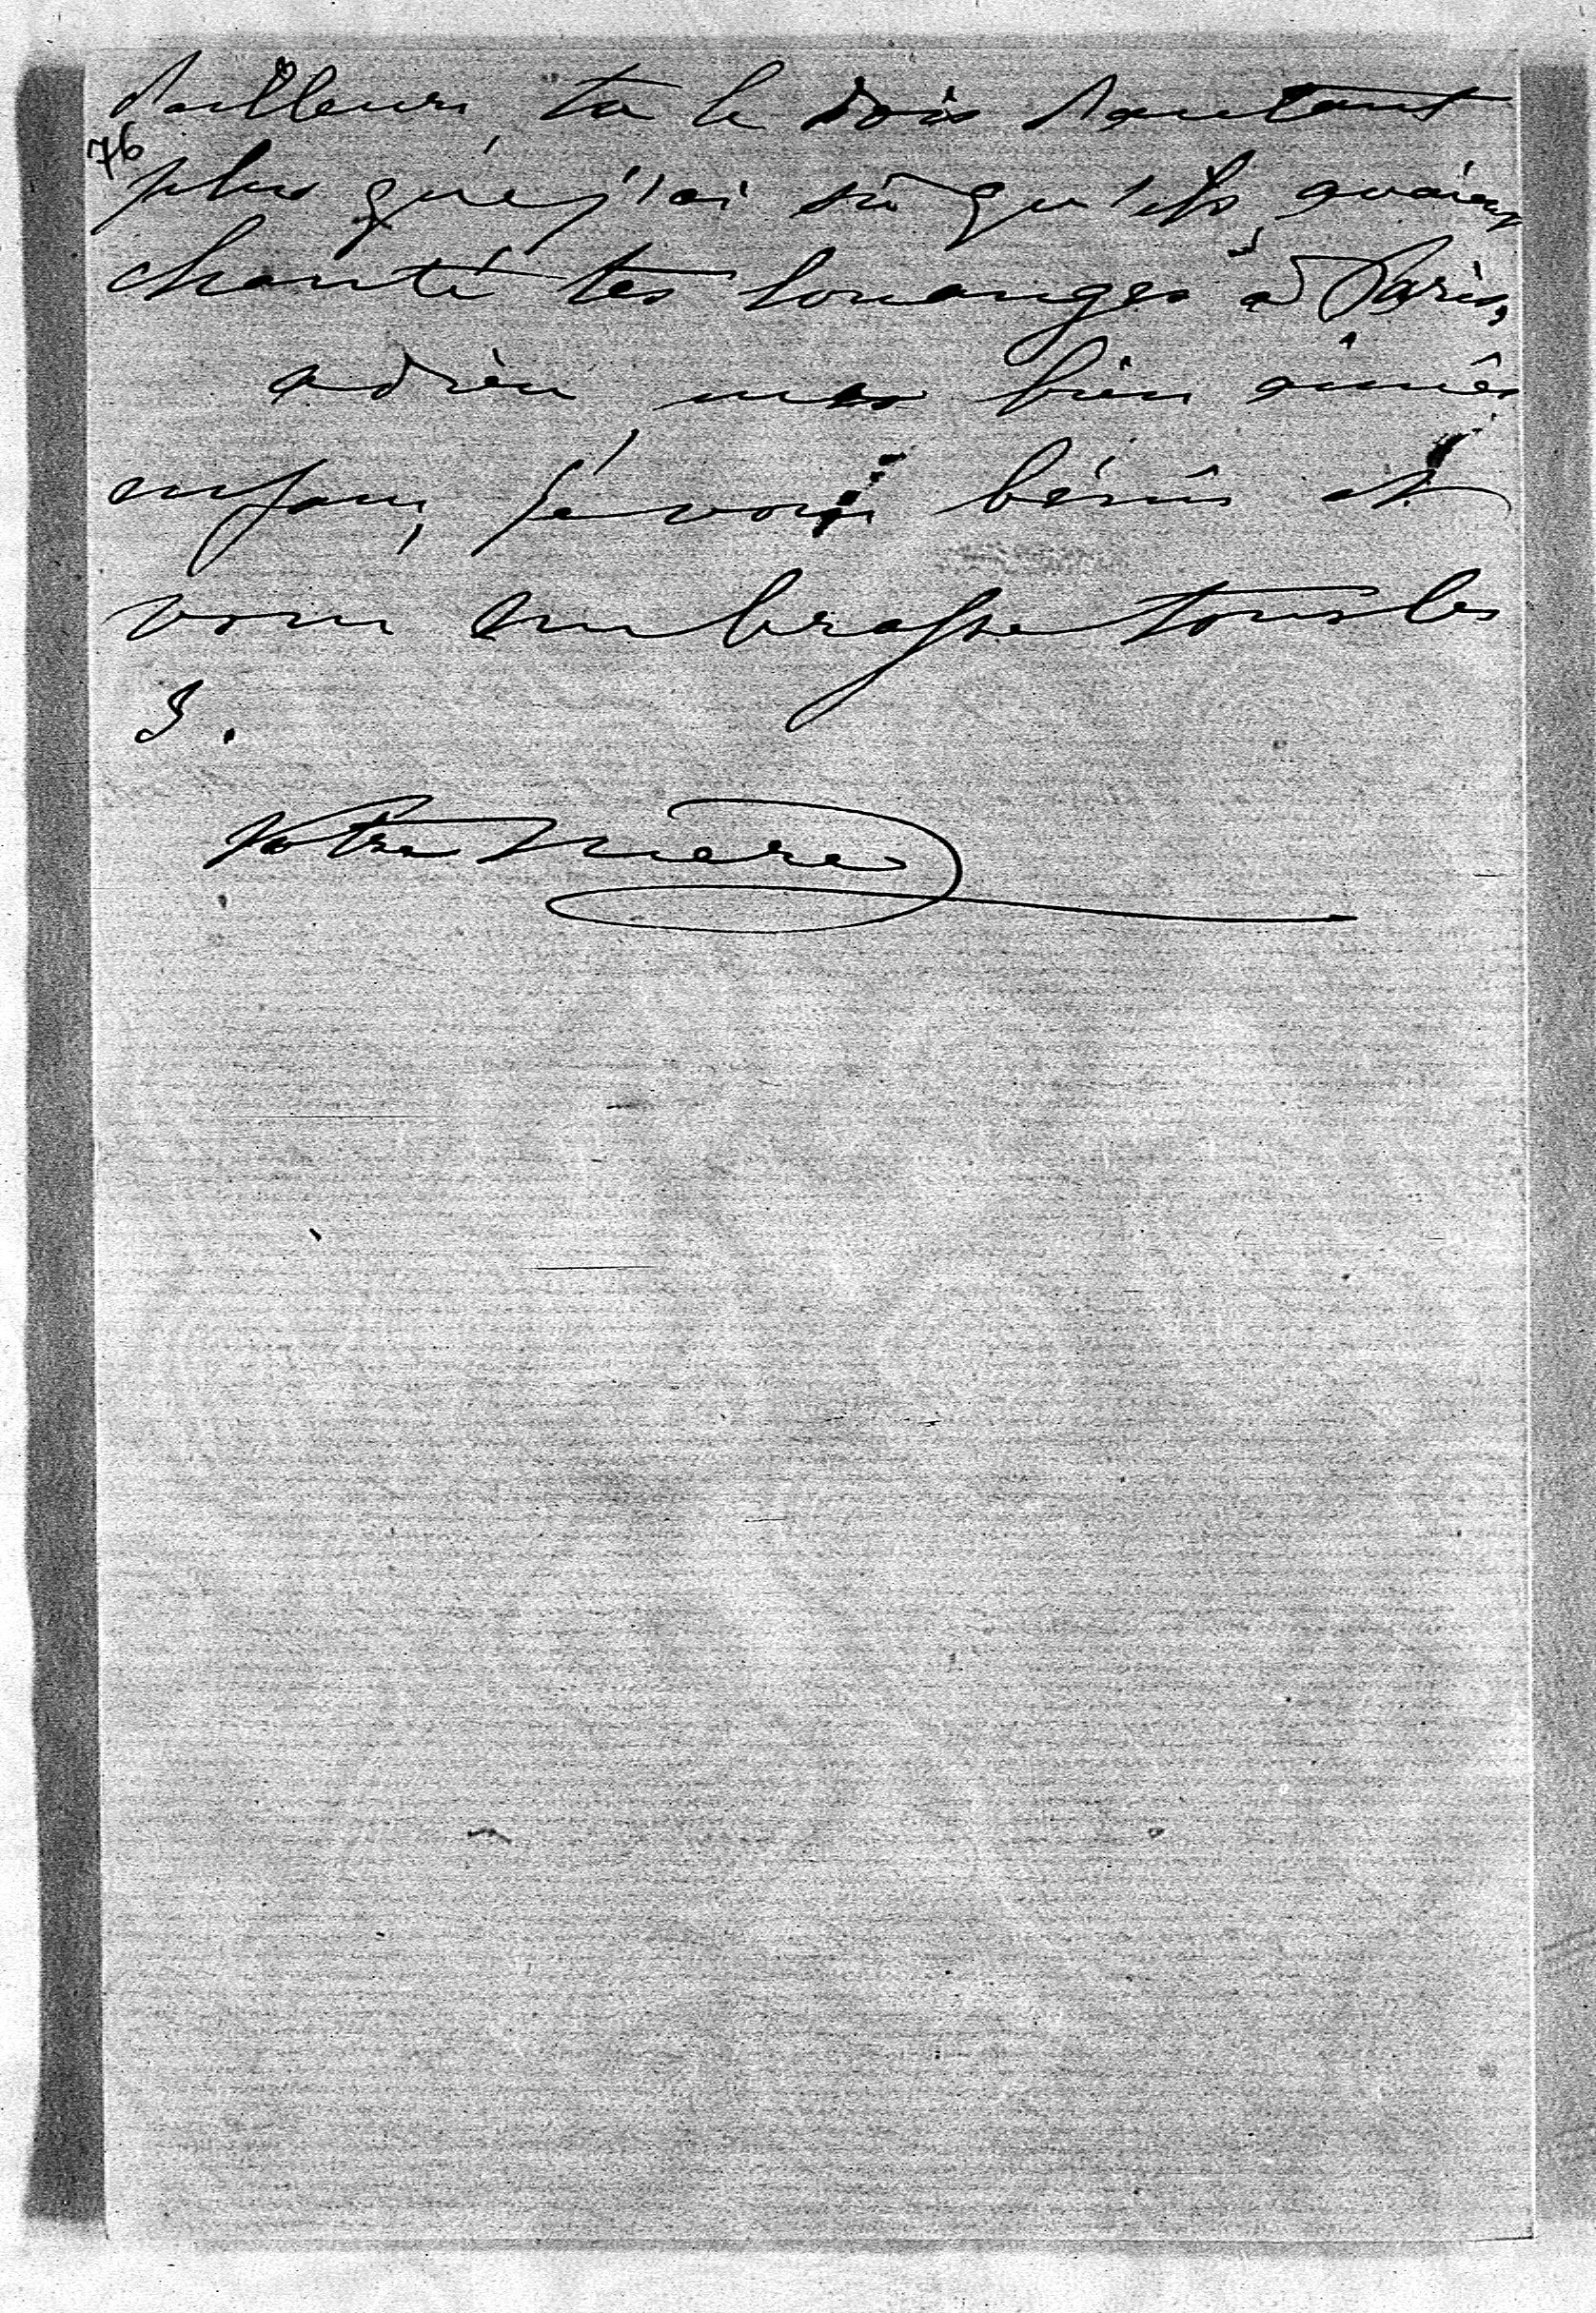 d'ailleurs, tu le dois d'autant
76
plus que j'ai sû qu'ils avaient
chanté tes louanges à Paris,
adieu mes bien aimés
enfans, je vous bénis et
vous embrasse tous les
3.
Votre mère